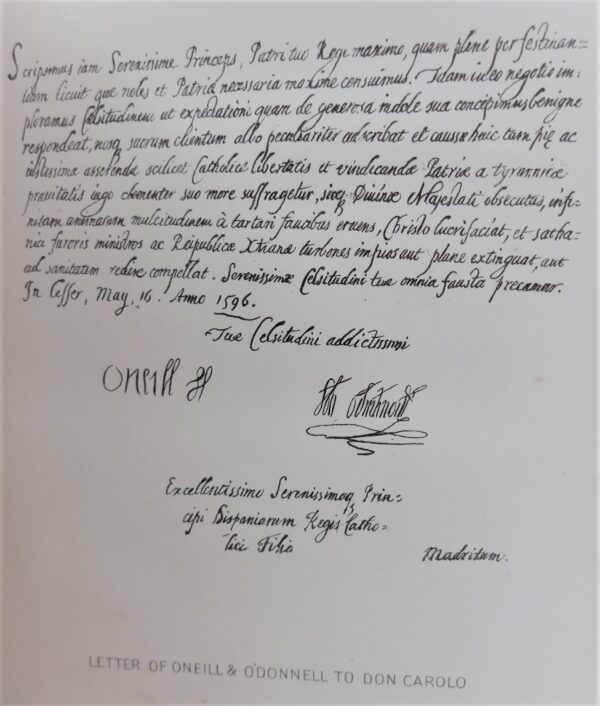 Scripsimus iam Serenissime Princeps, Patri tuo Regi maximo, quam plene per festinan=
tiam licuit que nobis et Patriæ necessaria maxime censuimus. Idam in eo negotio im=
ploramus Celsitudinem ut expectationi quam de generosa indole sua concepimus benigne
respondeat, nosq suorum clientum albo peculiariter adscribat et caussæ huic tam piȩ ac
iustissimæ asserendæ scilicet Catholicæ libertatis et vindicandæ Patriæ a tyrannicæ
pravitatis iugo clementer suo more suffragetur, sicq Divinæ Majestati obsecutus, infi=
nitam animarum multitudinem à tartari faucibus eruens, Christo lucrifaciat, et satha=
nici furoris ministros ac Reipublicæ Xtianæ turbones impios aut plane extinguat, aut
ad sanitatem redire compellat. Serenissimæ Celsitudini tuæ omnia fausta precamur.
In Lesser, May, 16. Anno 1596.
Tuæ Celsitudini addictissimi
ONeill
Excellentissimo Serenissimoq Prin=
cipi Hispaniarum Regis Catho=
lici Filio
Madritum.
LETTER OF ONEILL & O'DONNELL TO DON CAROLO